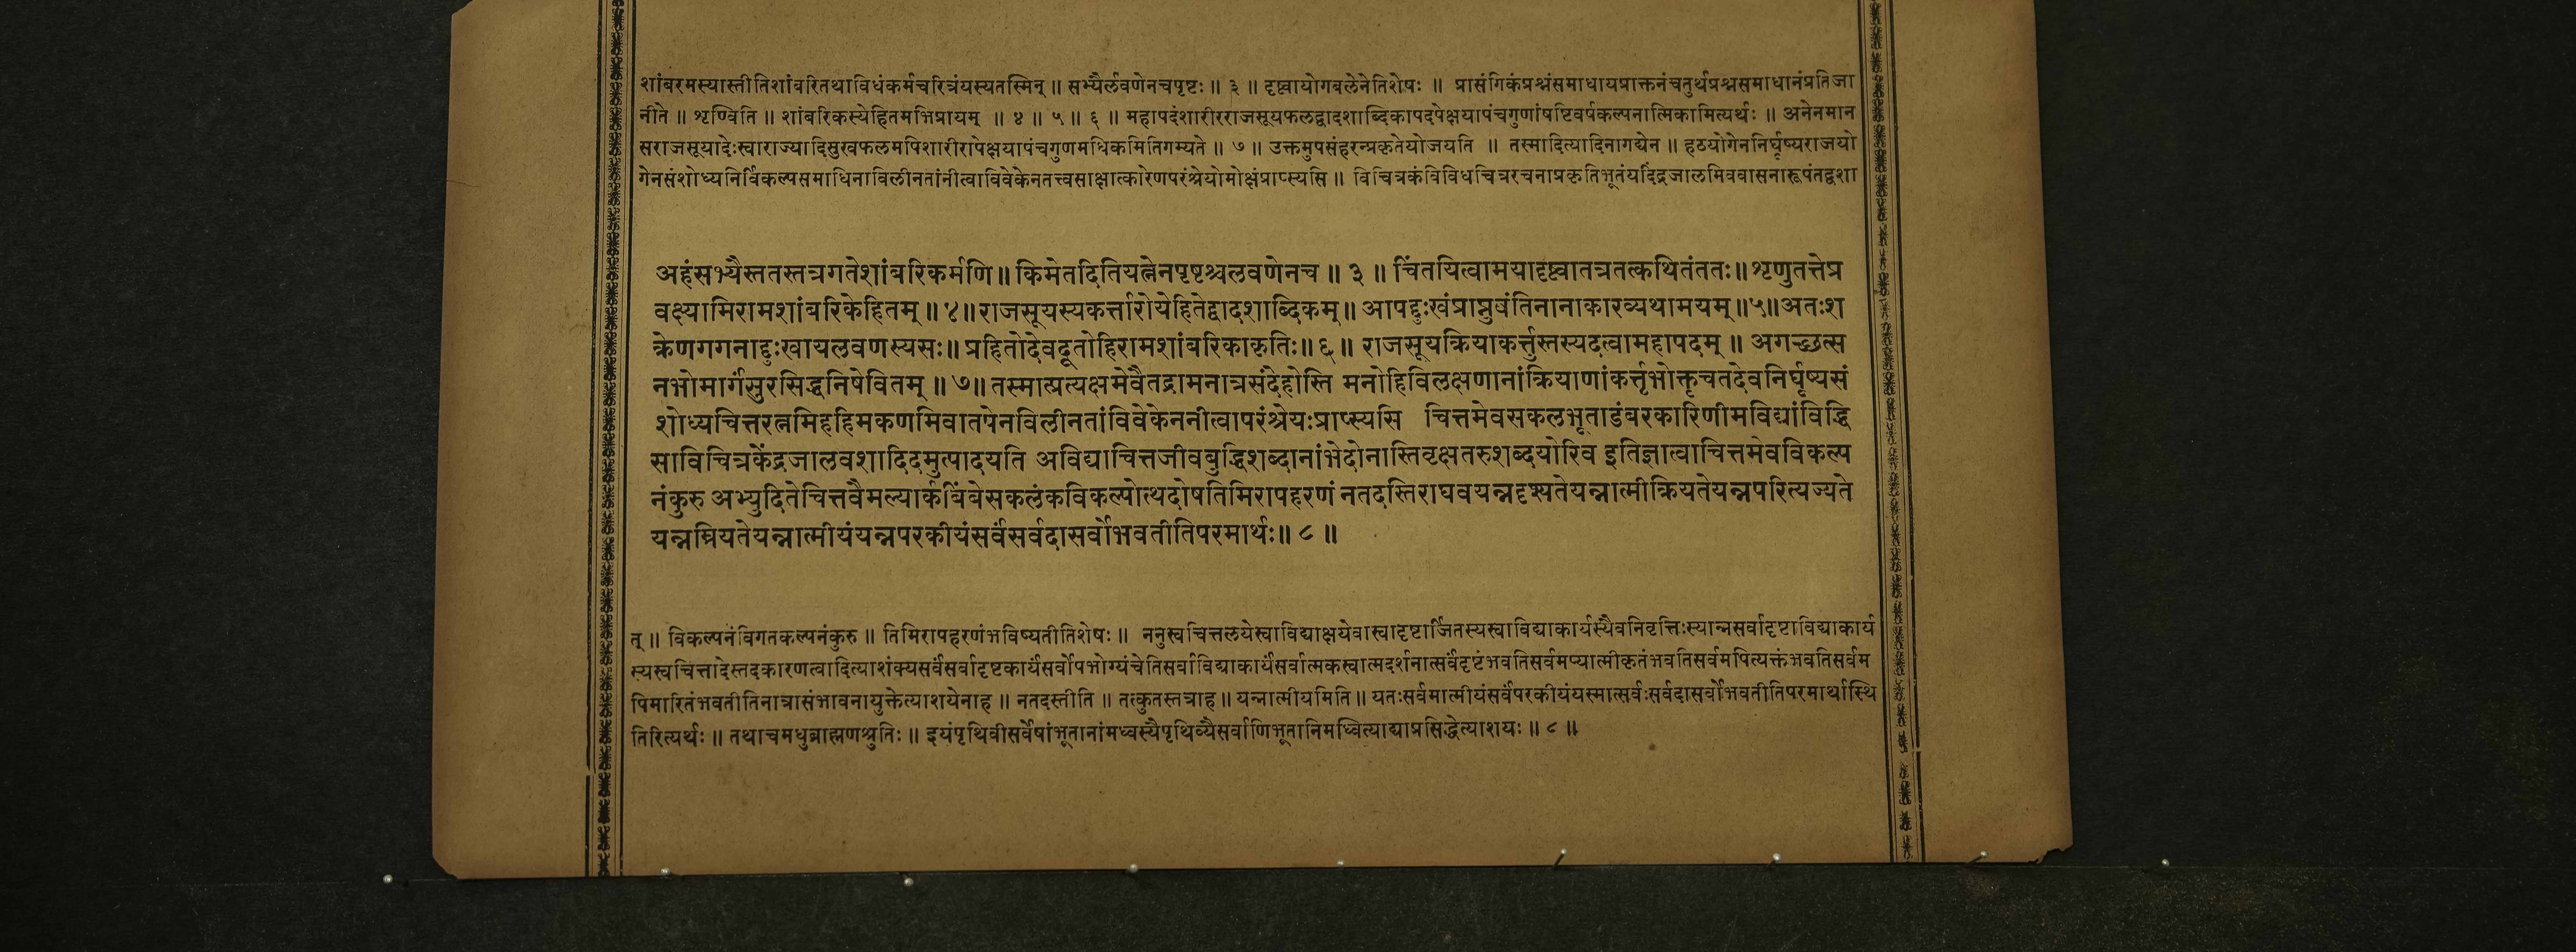 शांबरमस्यास्तीतिशांबरितथाविधंकर्मचरित्रंयस्यतस्मिन् ॥ सभ्यैर्लवणेनचपृष्टः ॥ ३ ॥ दृष्ट्वायोगबलेनेतिशेषः ॥ प्रासंगिकंप्रश्नंसमाधायप्राक्तनंचतुर्थप्रश्नसमाधानंप्रतिजा
नीते ॥ शृण्विति ॥ शांबरिकस्येहितमभिप्रायम् ॥ ४ ॥ ५ ॥ ६ ॥ महापदंशारीरराजसूयफलद्वादशाब्दिकापदपेक्षयापंचगुणांषष्टिवर्षकल्पनात्मिकामित्यर्थः ॥ अनेनमान
सराजसूयादेःस्वाराज्यादिसुखफलमपिशारीरापेक्षयापंचगुणमधिकमितिगम्यते ॥ ७ ॥ उक्तमुपसंहरन्प्रकृतेयोजयति ॥ तस्मादित्यादिनागद्येन ॥ हठयोगेननिर्घृष्यराजयो
गेनसंशोध्यनिर्विकल्पसमाधिनाविलीनतांनीत्वाविवेकेनतत्त्वसाक्षात्कारेणपरंश्रेयोमोक्षंप्राप्स्यसि ॥ विचित्रकंविविधचित्ररचनाप्रकृतिभूतंयदिंद्रजालमिववासनारूपंतद्वशा
अहंसभ्यैस्ततस्तत्रगतेशांबरिकर्मणि ॥ किमेतदितियत्नेनपृष्टश्चलवणेनच ॥ ३ ॥ चिंतयित्वामयादृष्ट्वातत्रतत्कथितंततः ॥ शृणुतत्तेप्र
वक्ष्यामिरामशांबरिकेहितम् ॥ ४ ॥ राजसूयस्यकर्त्तारोयेहितेद्वादशाब्दिकम् ॥ आपद्दुःखंप्राप्नुवंतिनानाकारव्यथामयम् ॥ ५ ॥ अतःश
क्रेणगगनाद्दुःखायलवणस्यसः ॥ प्रहितोदेवदूतोहिरामशांबरिकाकृतिः ॥ ६ ॥ राजसूयक्रियाकर्त्तुस्तस्यदत्वामहापदम् ॥ अगच्छत्स
नभोमार्गंसुरसिद्धनिषेवितम् ॥ ७ ॥ तस्मात्प्रत्यक्षमेवैतद्रामनात्रसंदेहोस्ति मनोहिविलक्षणानांक्रियाणांकर्त्तृभोक्तृचतदेवनिर्घृष्यसं
शोध्यचित्तरत्नमिहहिमकणमिवातपेनविलीनतांविवेकेननीत्वापरंश्रेयःप्राप्स्यसि चित्तमेवसकलभूताडंबरकारिणीमविद्यांविद्धि
साविचित्रकेंद्रजालवशादिदमुत्पादयति अविद्याचित्तजीवबुद्धिशब्दानांभेदोनास्तिवृक्षतरुशब्दयोरिव इतिज्ञात्वाचित्तमेवविकल्प
नंकुरु अभ्युदितेचित्तवैमल्यार्कबिंबेसकलंकविकल्पोत्थदोषतिमिरापहरणं नतदस्तिराघवयन्नदृश्यतेयन्नात्मीक्रियतेयन्नपरित्यज्यते
यन्नम्रियतेयन्नात्मीयंयन्नपरकीयंसर्वंसर्वदासर्वोभवतीतिपरमार्थः ॥ ८ ॥
त् ॥ विकल्पनंविगतकल्पनंकुरु ॥ तिमिरापहरणंभविष्यतीतिशेषः ॥ ननुस्वचित्तलयेस्वाविद्याक्षयेवास्वादृष्टार्जितस्यस्वाविद्याकार्यस्यैवनिवृत्तिःस्यान्नसर्वादृष्टाविद्याकार्य
स्यस्वचित्तादेस्तदकारणत्वादित्याशंक्यसर्वंसर्वादृष्टकार्यंसर्वोपभोग्यंचेतिसर्वाविद्याकार्यंसर्वात्मकस्वात्मदर्शनात्सर्वंदृष्टंभवतिसर्वमप्यात्मीकृतंभवतिसर्वमपित्यक्तंभवतिसर्वम
पिमारितंभवतीतिनात्रासंभावनायुक्तेत्याशयेनाह ॥ नतदस्तीति ॥ तत्कुतस्तत्राह ॥ यन्नात्मीयमिति ॥ यतःसर्वमात्मीयंसर्वंपरकीयंयस्मात्सर्वःसर्वदासर्वोभवतीतिपरमार्थास्थि
तिरित्यर्थः ॥ तथाचमधुब्राह्मणश्रुतिः ॥ इयंपृथिवीसर्वेषांभूतानांमध्वस्यैपृथिव्यैसर्वाणिभूतानिमध्वित्याद्याप्रसिद्धेत्याशयः ॥ ८ ॥